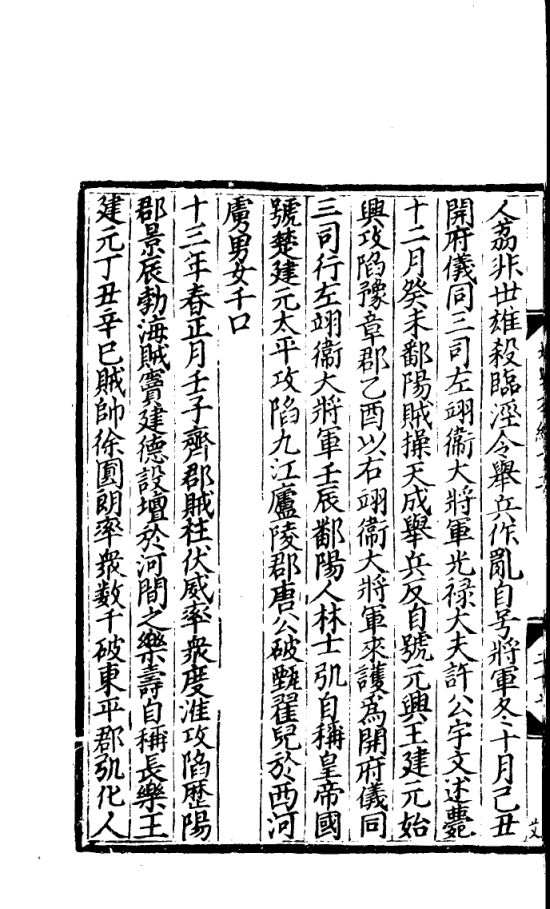 人荔非世雄殺臨涇令舉兵作亂自号將軍冬十月己丑
開府儀同三司左翊衞大將軍光禄大夫許公宇文述薨
十二月癸未鄱陽賊操天成舉兵反自號元興王建元始
興攻陷豫章郡乙酉以右翊衞大將軍來護爲開府儀同
三司行左翊衞大將軍壬辰鄱陽人林士弘自稱皇帝國
號楚建元太平攻陷九江廬陵郡唐公破甄翟兒於西河
虜男女千口
十三年春正月壬子齊郡賊杜伏威率衆度淮攻陷歷陽
郡景辰勃海賊竇建德設壇於河間之樂壽自稱長樂王
建元丁丑辛巳賊帥徐圓朗率衆数千破東平郡弘化人